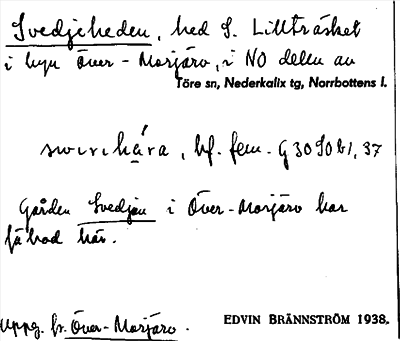 Svedjeheden, hed S. Lillträsket
i byn Över-Morjärv, i NO delen av
Töre sn, Nederkalix tg, Norrbottens l.
bf. fem. G 3090 b1, 37
Gården Svedjan i Över-Morjärv har
fäbod här.
Uppg. fr. Över-Morjärv.
EDVIN BRÄNNSTRÖM 1938.